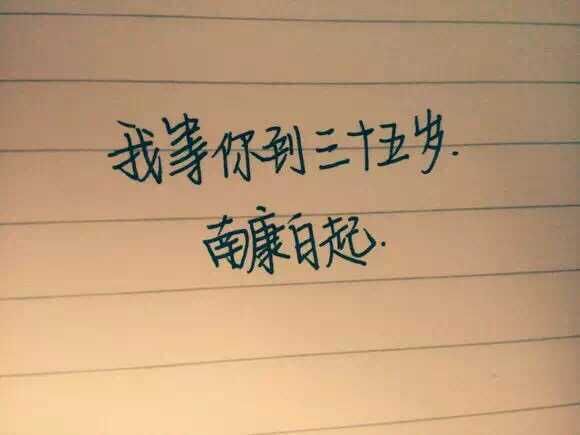 我等你到三十五岁.
南康白起.